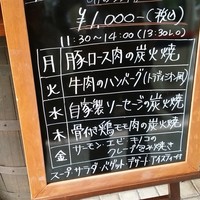 ¥1,000-(税込)
11:30~14:00(13:30L.O)
月 豚ロース肉の炭火焼
火 牛肉のハンバーグ
水 自家製ソーセージの炭火焼
木 骨付き鶏モモ肉の炭火焼
金 サーモン・エビ キノコの
クレープ包み焼き
スープ サラダ バゲット デザート アイスティー付